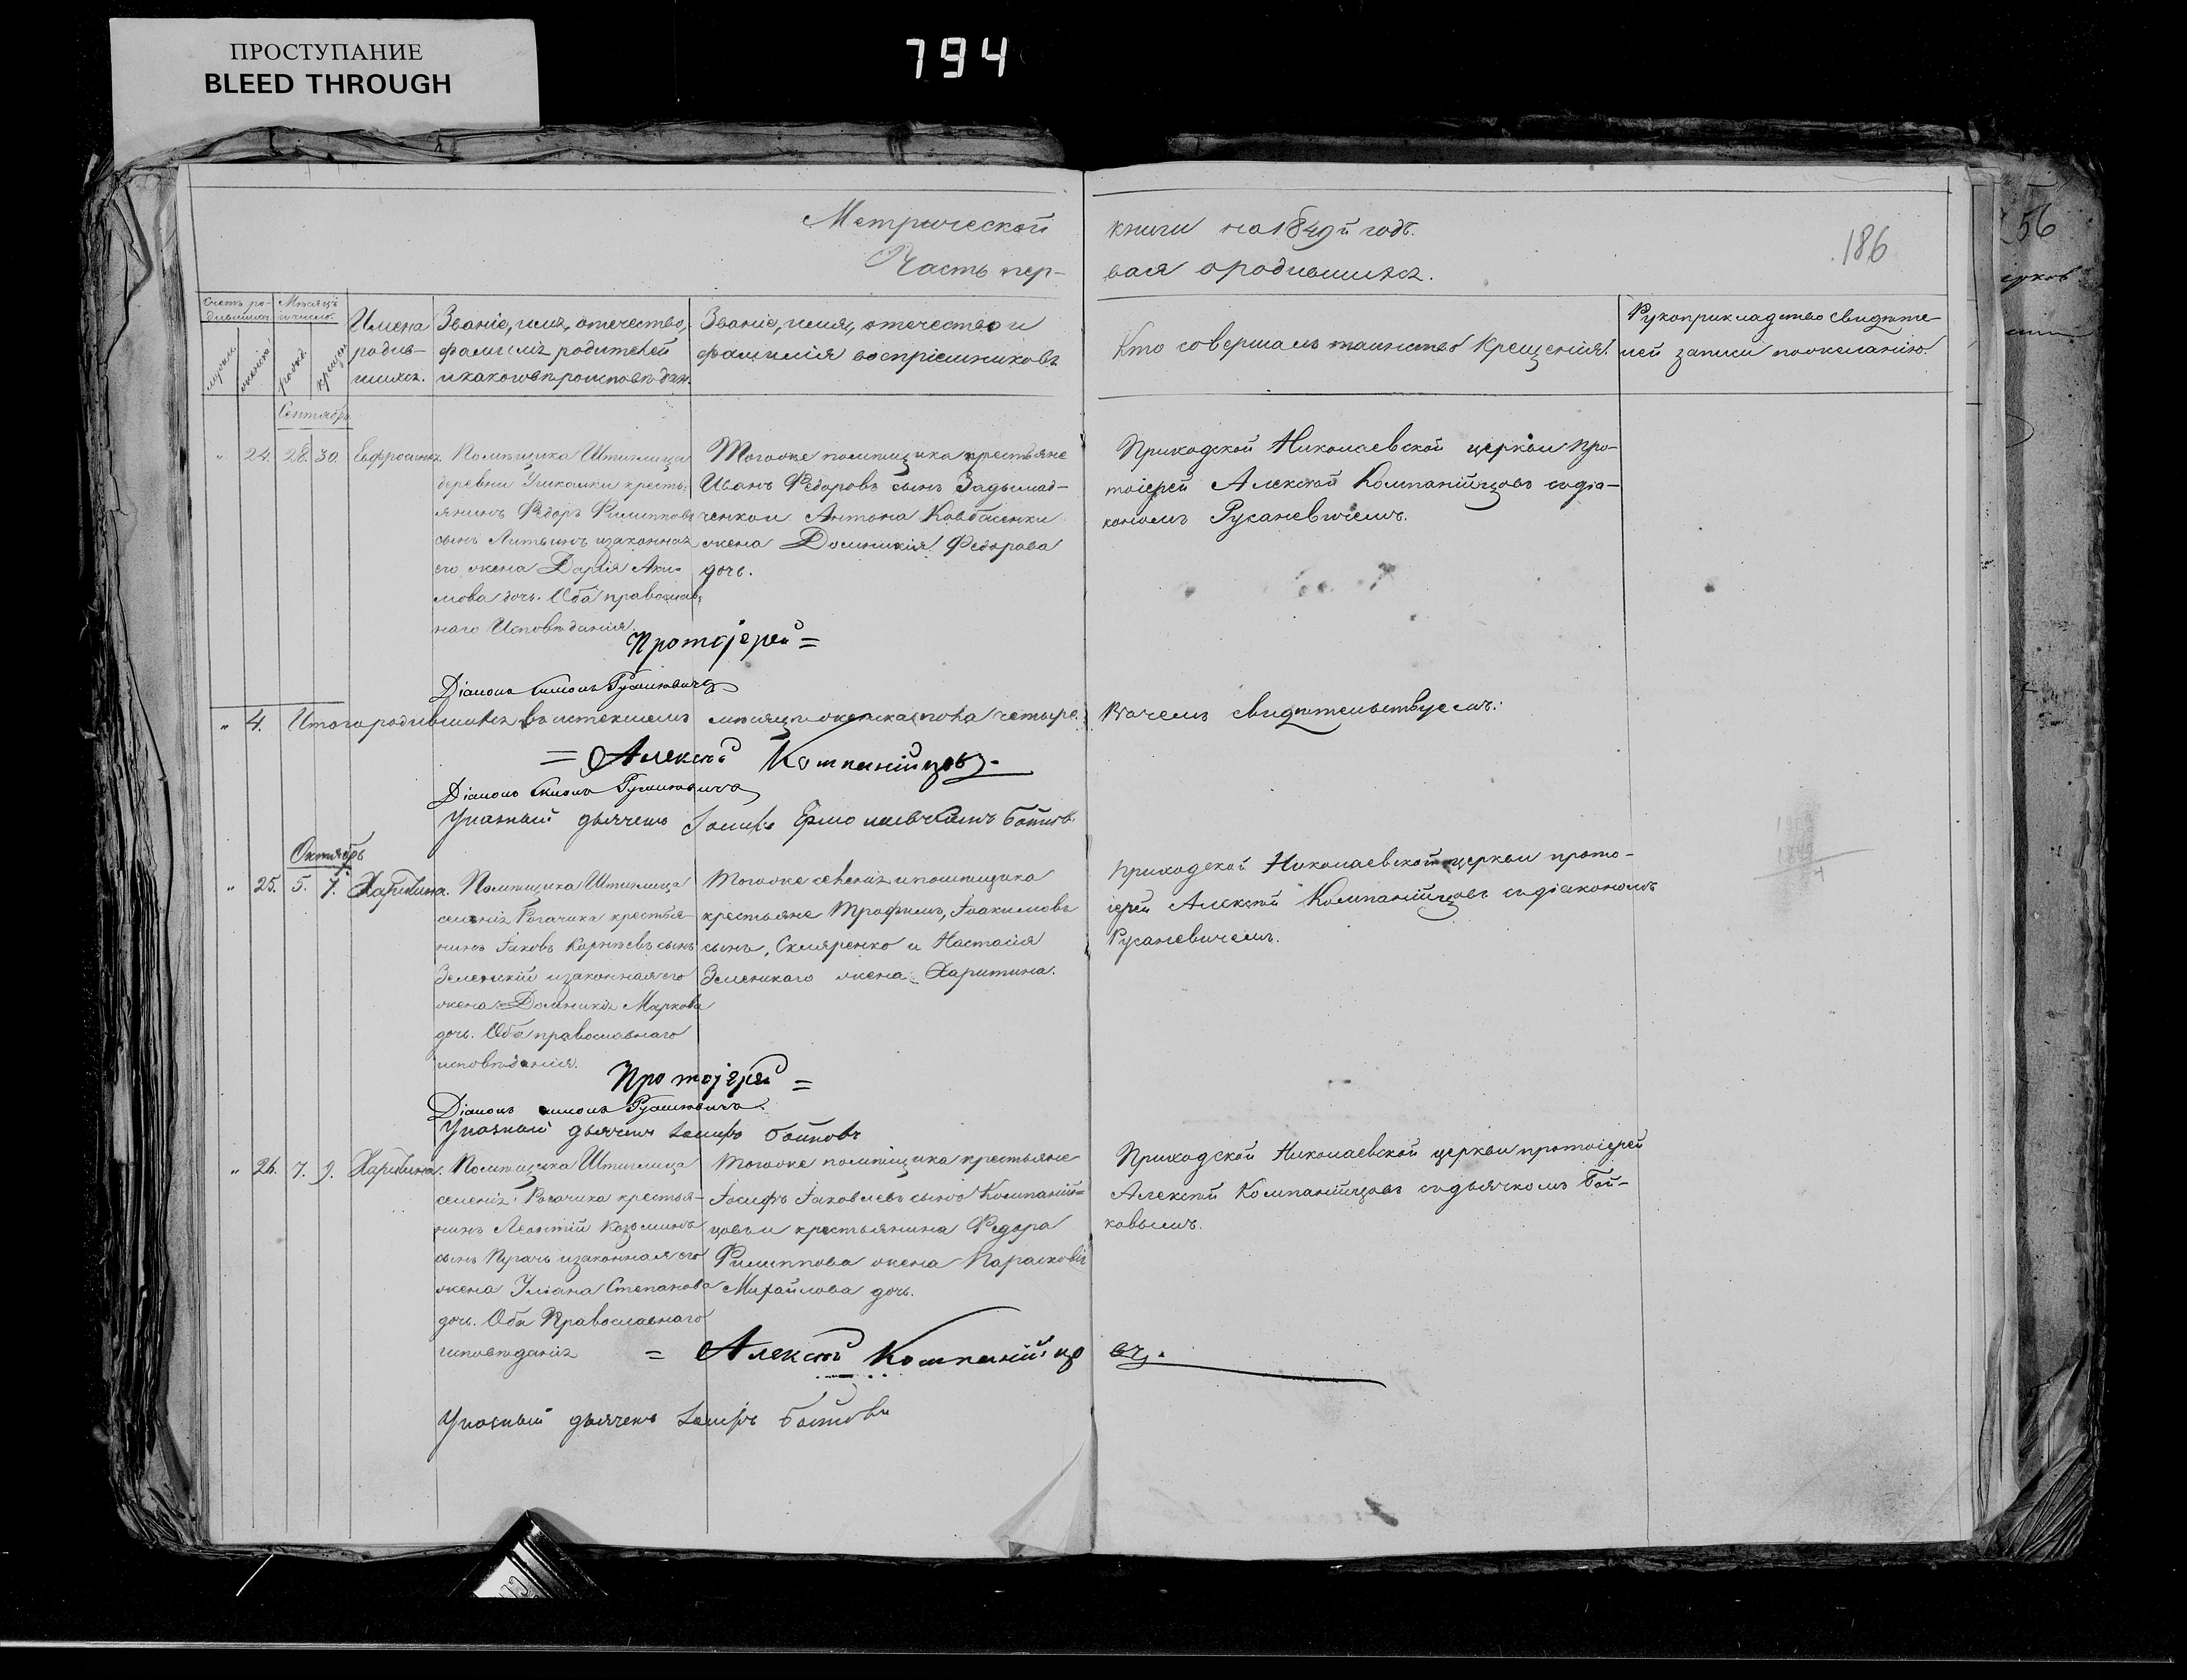 ПРОСТУПАНИЕ
BLEED THROUGH
794
Метрической книги на 1849й годъ.
Часть пер-вая ородившихся.
186
56
Счетъ ро-дившихся
Мѣсяцъ и число.
мужск.
женска
рожд.
крещен.
Имена
родив-
шихся.
Званіе, имя, отечество,
фамилія родителей
и какого вѣроисповѣдан.
Званіе, имя, отечество и
фамилія воспріемниковъ
Кто совершалъ таинство Крещенія.
Рукоприкладство свидѣте-
лей записи по желанію.
Сентябрь
" 24. 28. 30. Евфросинія.
Помѣщика Штиглица
деревни Ушкалки кресть-
янинъ Ѳедоръ Филипповъ
сынъ Литвинъ изаконная
его жена Дарія Аки-
мова дочь. Оба православ-
наго Исповѣданія.
Тогоже помѣщика крестьяне
Иванъ Ѳедоровъ сынъ Задымад-
ченкои Антона Ковбасенки
жена Домникія Федорова
дочь.
Приходской Николаевской церкви про-
тоіерей Алексѣй Компанійцовъ содіа-
кономъ Русаневичемъ.
Протоіерей =
Діаконъ Симонъ Русаневичъ
" 4. Итого родившихся въ истекшемъ мѣсяцѣ женска пола четыре. Вочемъ свидѣтельствуемъ:
= Алексѣй Компанійцовъ.
Діаконъ Симонъ Русаневичъ
Указный дьячекъ Іосифъ Бойковъ.
Октябрь
" 25. 5. 7. Харитина.
Помѣщика Штиглица
селенія Рогачика крестья-
нинъ Іаковъ Карпѣевъ сынъ
Зеленскій изаконная его
жена Домникія Маркова
дочь. Оба православнаго
исповѣданія.
Тогоже селенія ипомѣщика
крестьяне Трофимъ, Іоакимовъ
сынъ, Скляренко и Настасія
Зеленкаго жена Харитина.
Приходской Николаевской церкви прото-
іерей Алексѣй Компанійцовъ содіакономъ
Русаневичемъ.
Протоіерей =
Діаконъ Симонъ Русаневичъ.
Указный дьячекъ Іосифъ Бойковъ
" 26. 7. 9. Харитина.
Помѣщика Штиглица
селенія Рогачика крестья-
нинъ Леонтій Козминъ
сынъ Пугачъ изаконная его
жена Уліана Степанова
дочь. Оба Православнаго
исповѣданія
Тогоже помѣщика крестьяне
Іосифъ Іаковлевъ сынъ Компаній-
цовъ и крестьянина Ѳедора
Филиппова жена Парасковія
Михайлова дочь.
Приходской Николаевской церкви протоіерей
Алексѣй Компанійцовъ содьячкомъ Бой-
ковымъ.
= Алексѣй Компанійцовъ.
Указный дьячекъ Іосифъ Бойковъ